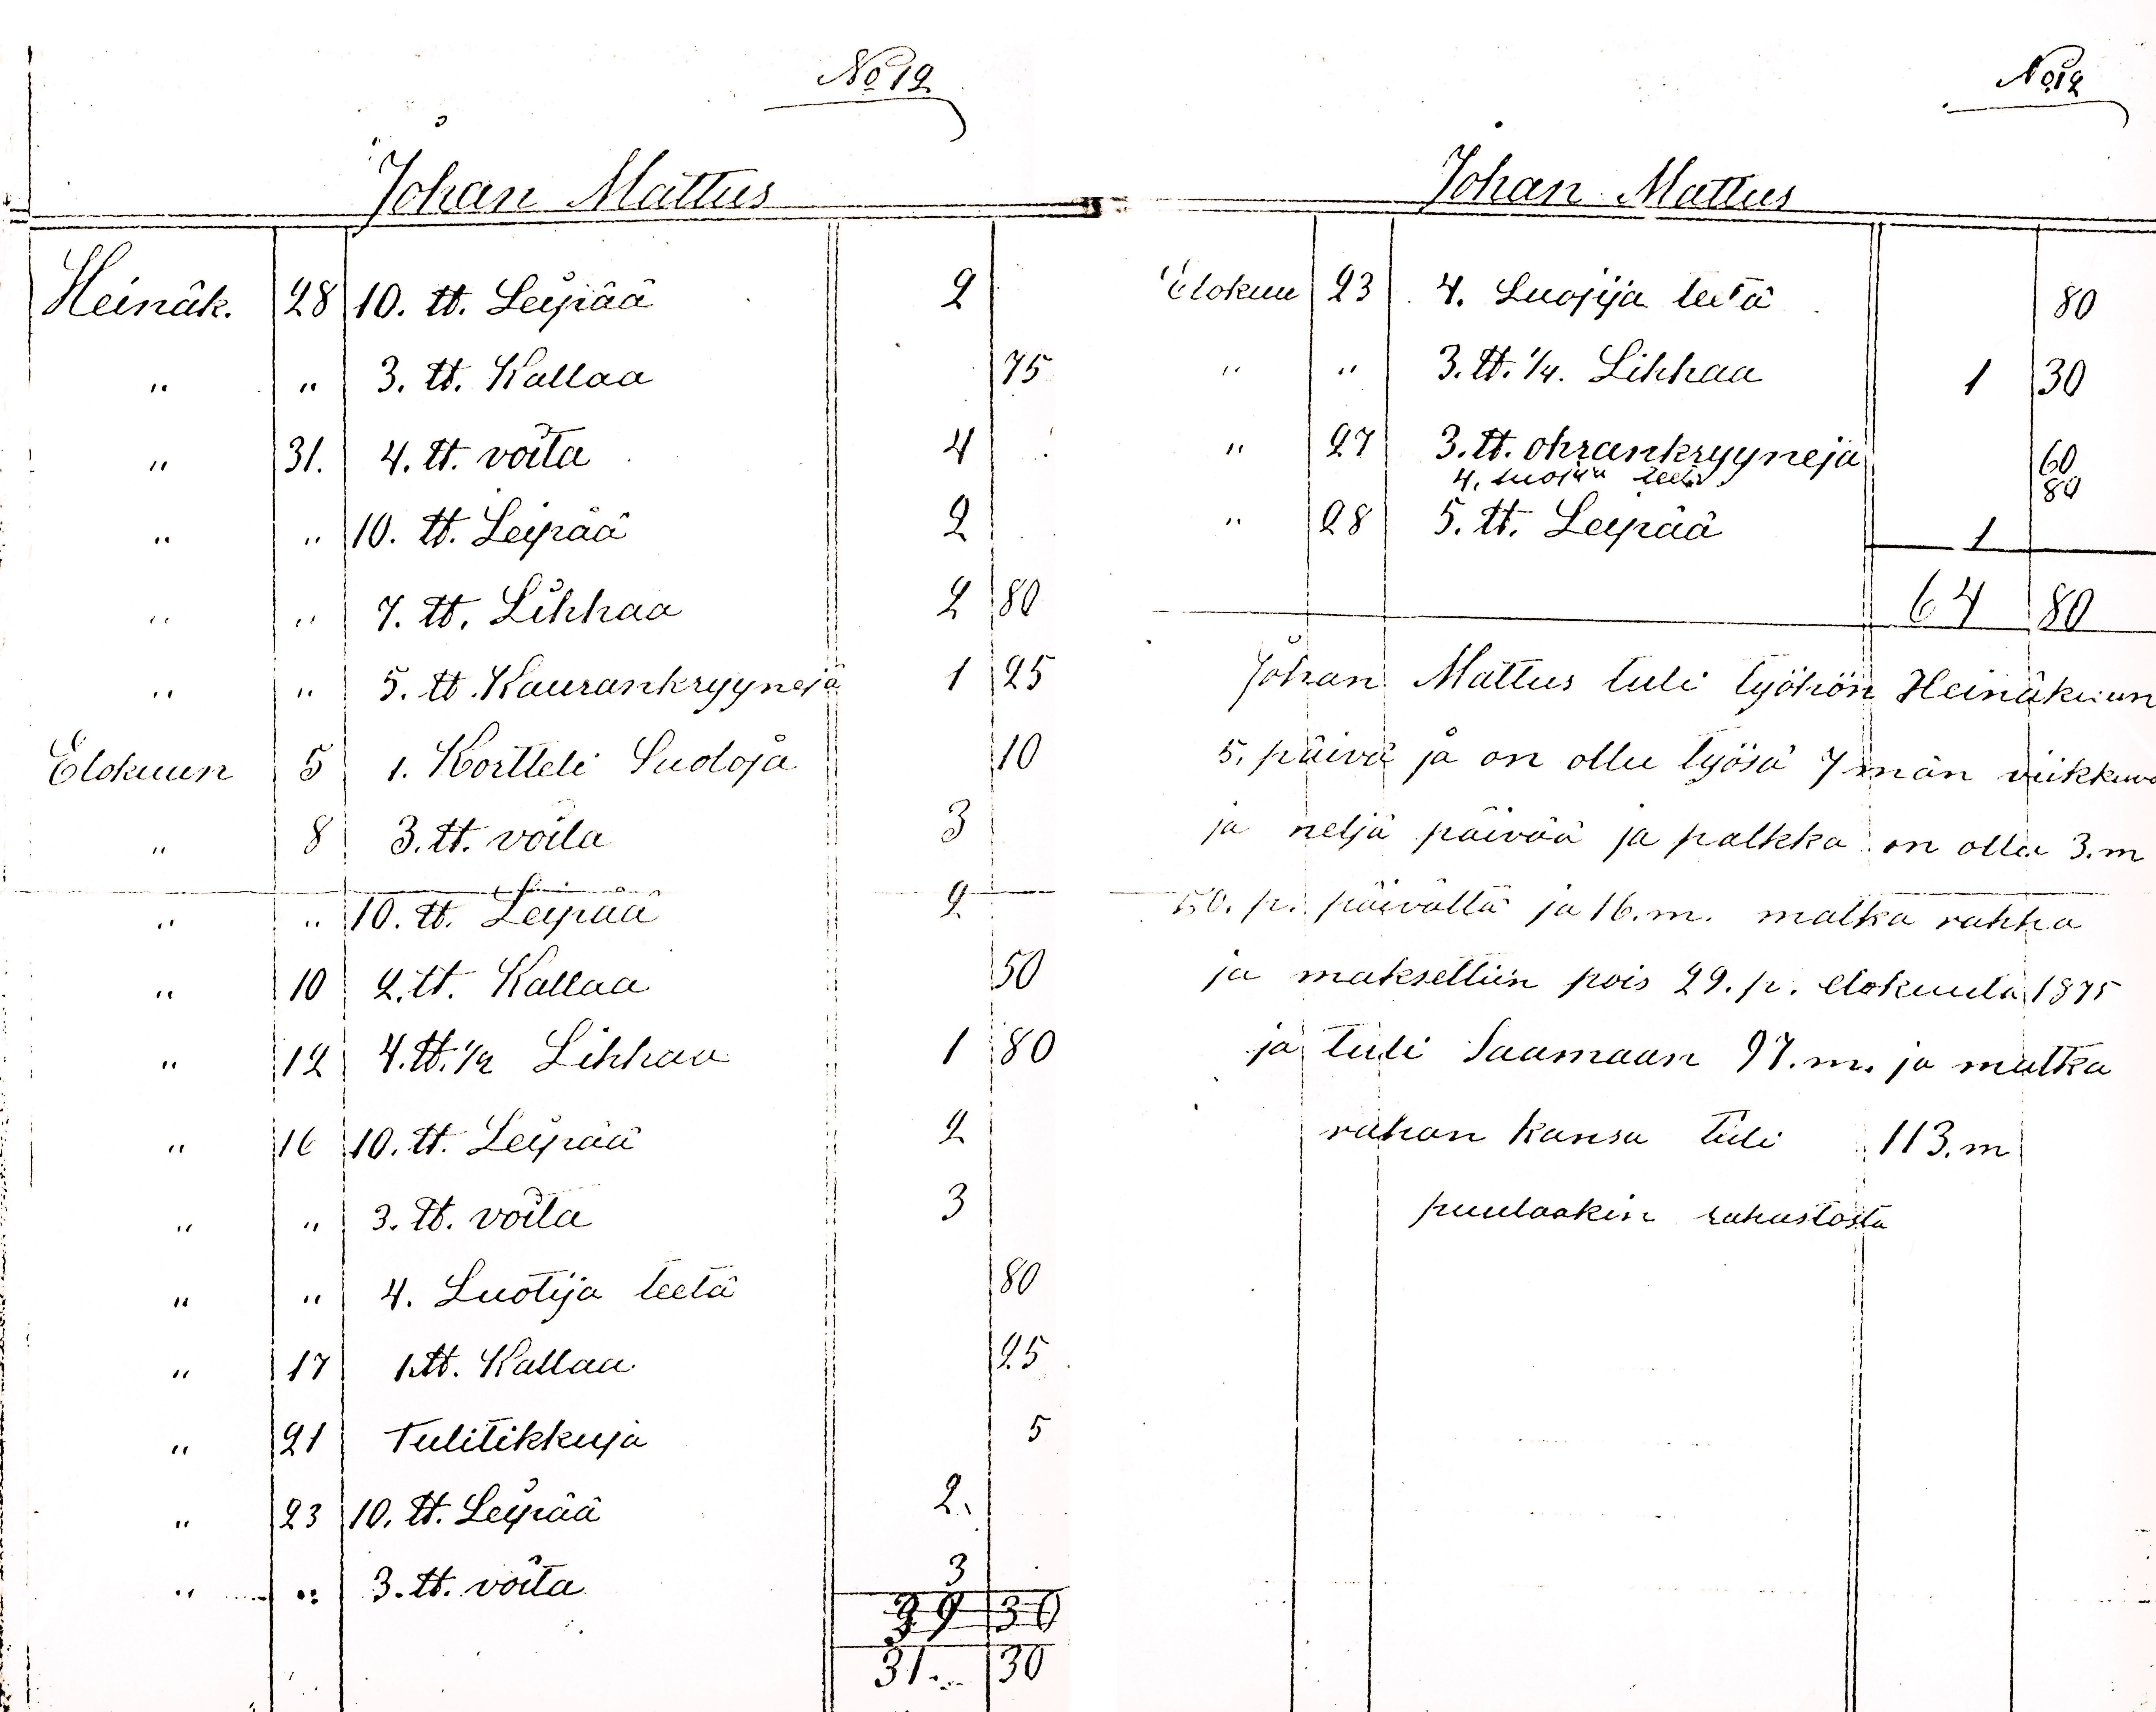 No 12
Johan Mattus
Heinäk. 28 10. tt. Leipää 2
" " 3. tt. Kallaa 75
" 31. 4. tt. voita 4
" " 10. tt. Leipää 2
" " 7. tt. Lihhaa 2 80
" " 5. tt. Kaurankryynejä 1 25
Elokuun 5 1. Kortteli Suoloja 10
" 8 3. tt. voita 3
" " 10. tt. Leipää 2
" 10 2. tt. Kallaa 50
" 12 4. tt. 1/2 Lihhaa 1 80
" 16 10. tt. Leipää 2
" " 3. tt. voita 3
" " 4. Luotija teetä 80
" 17 1. tt. Kallaa 25
" 21 Tulitikkuja 5
" 23 10. tt. Leipää 2.
" " 3. tt. voita 3
39 30
31. 30
No 12
Johan Mattus
Elokuu 23 4. Luojija teetä 80
" " 3. tt. 1/4. Lihhaa 1 30
" 27 3. tt. ohrankryynejä 60
4. luojija teetä 80
" 28 5. tt. Leipää 1
64 80
Johan Mattus tuli työhön Heinäkuun
5. päivä ja on ollu työsä 7män viikkuva
ja neljä päivää ja palkka on ollu 3. m
50. p. päivältä ja 16. m. matka rahha
ja maksettiin pois 29. p. elokuuta 1875
ja tuli Saamaan 97. m. ja matka
rahan kansa tuli 113. m
puulaakin rahastosta